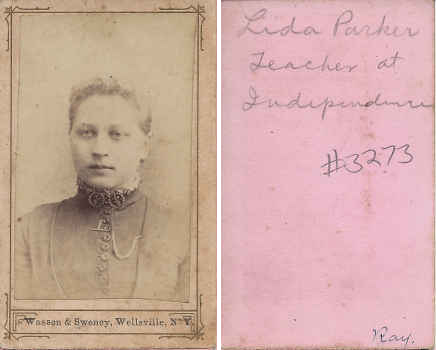 Wasson & Sweney, Wellsville, N.Y.
Lida Parker
Teacher at
Independence
#3273
Ray.